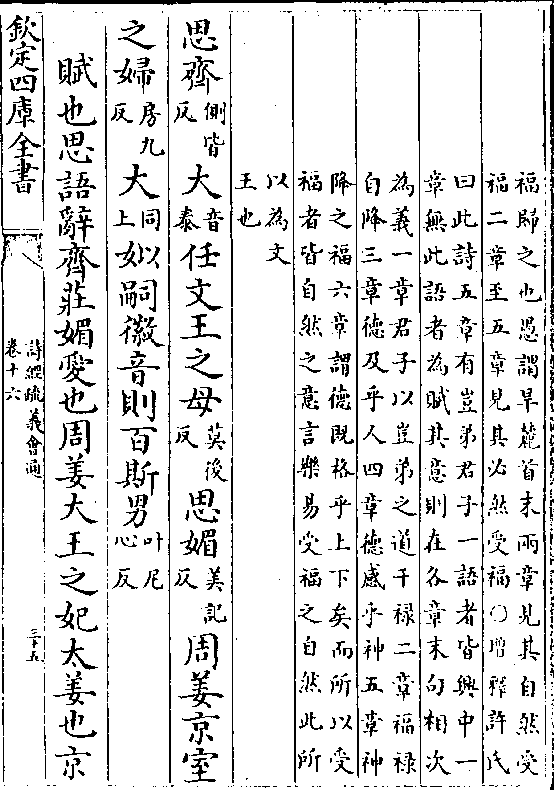 福歸之也愚謂旱麓首末兩章見其自然受
福二章至五章見其必然受福○增釋許氏
曰此詩五章有豈弟君子一語者皆興中一
章無此語者為賦其意則在各章末句相次
為義一章君子以豈弟之道干祿二章福祿
自降三章德及乎人四章德感乎神五章神
降之福六章謂德既格乎上下矣而所以受
福者皆自然之意言樂易受福之自然此所
以為文
王也
思齊側皆反大音泰任文王之母莫後反思媚美記反周姜京室
之婦房九反大同上姒嗣徽音則百斯男叶尼心反
賦也思語辭齊莊媚愛也周姜大王之妃太姜也京
欽定四庫全書
詩經疏義會通
卷十六
三十五